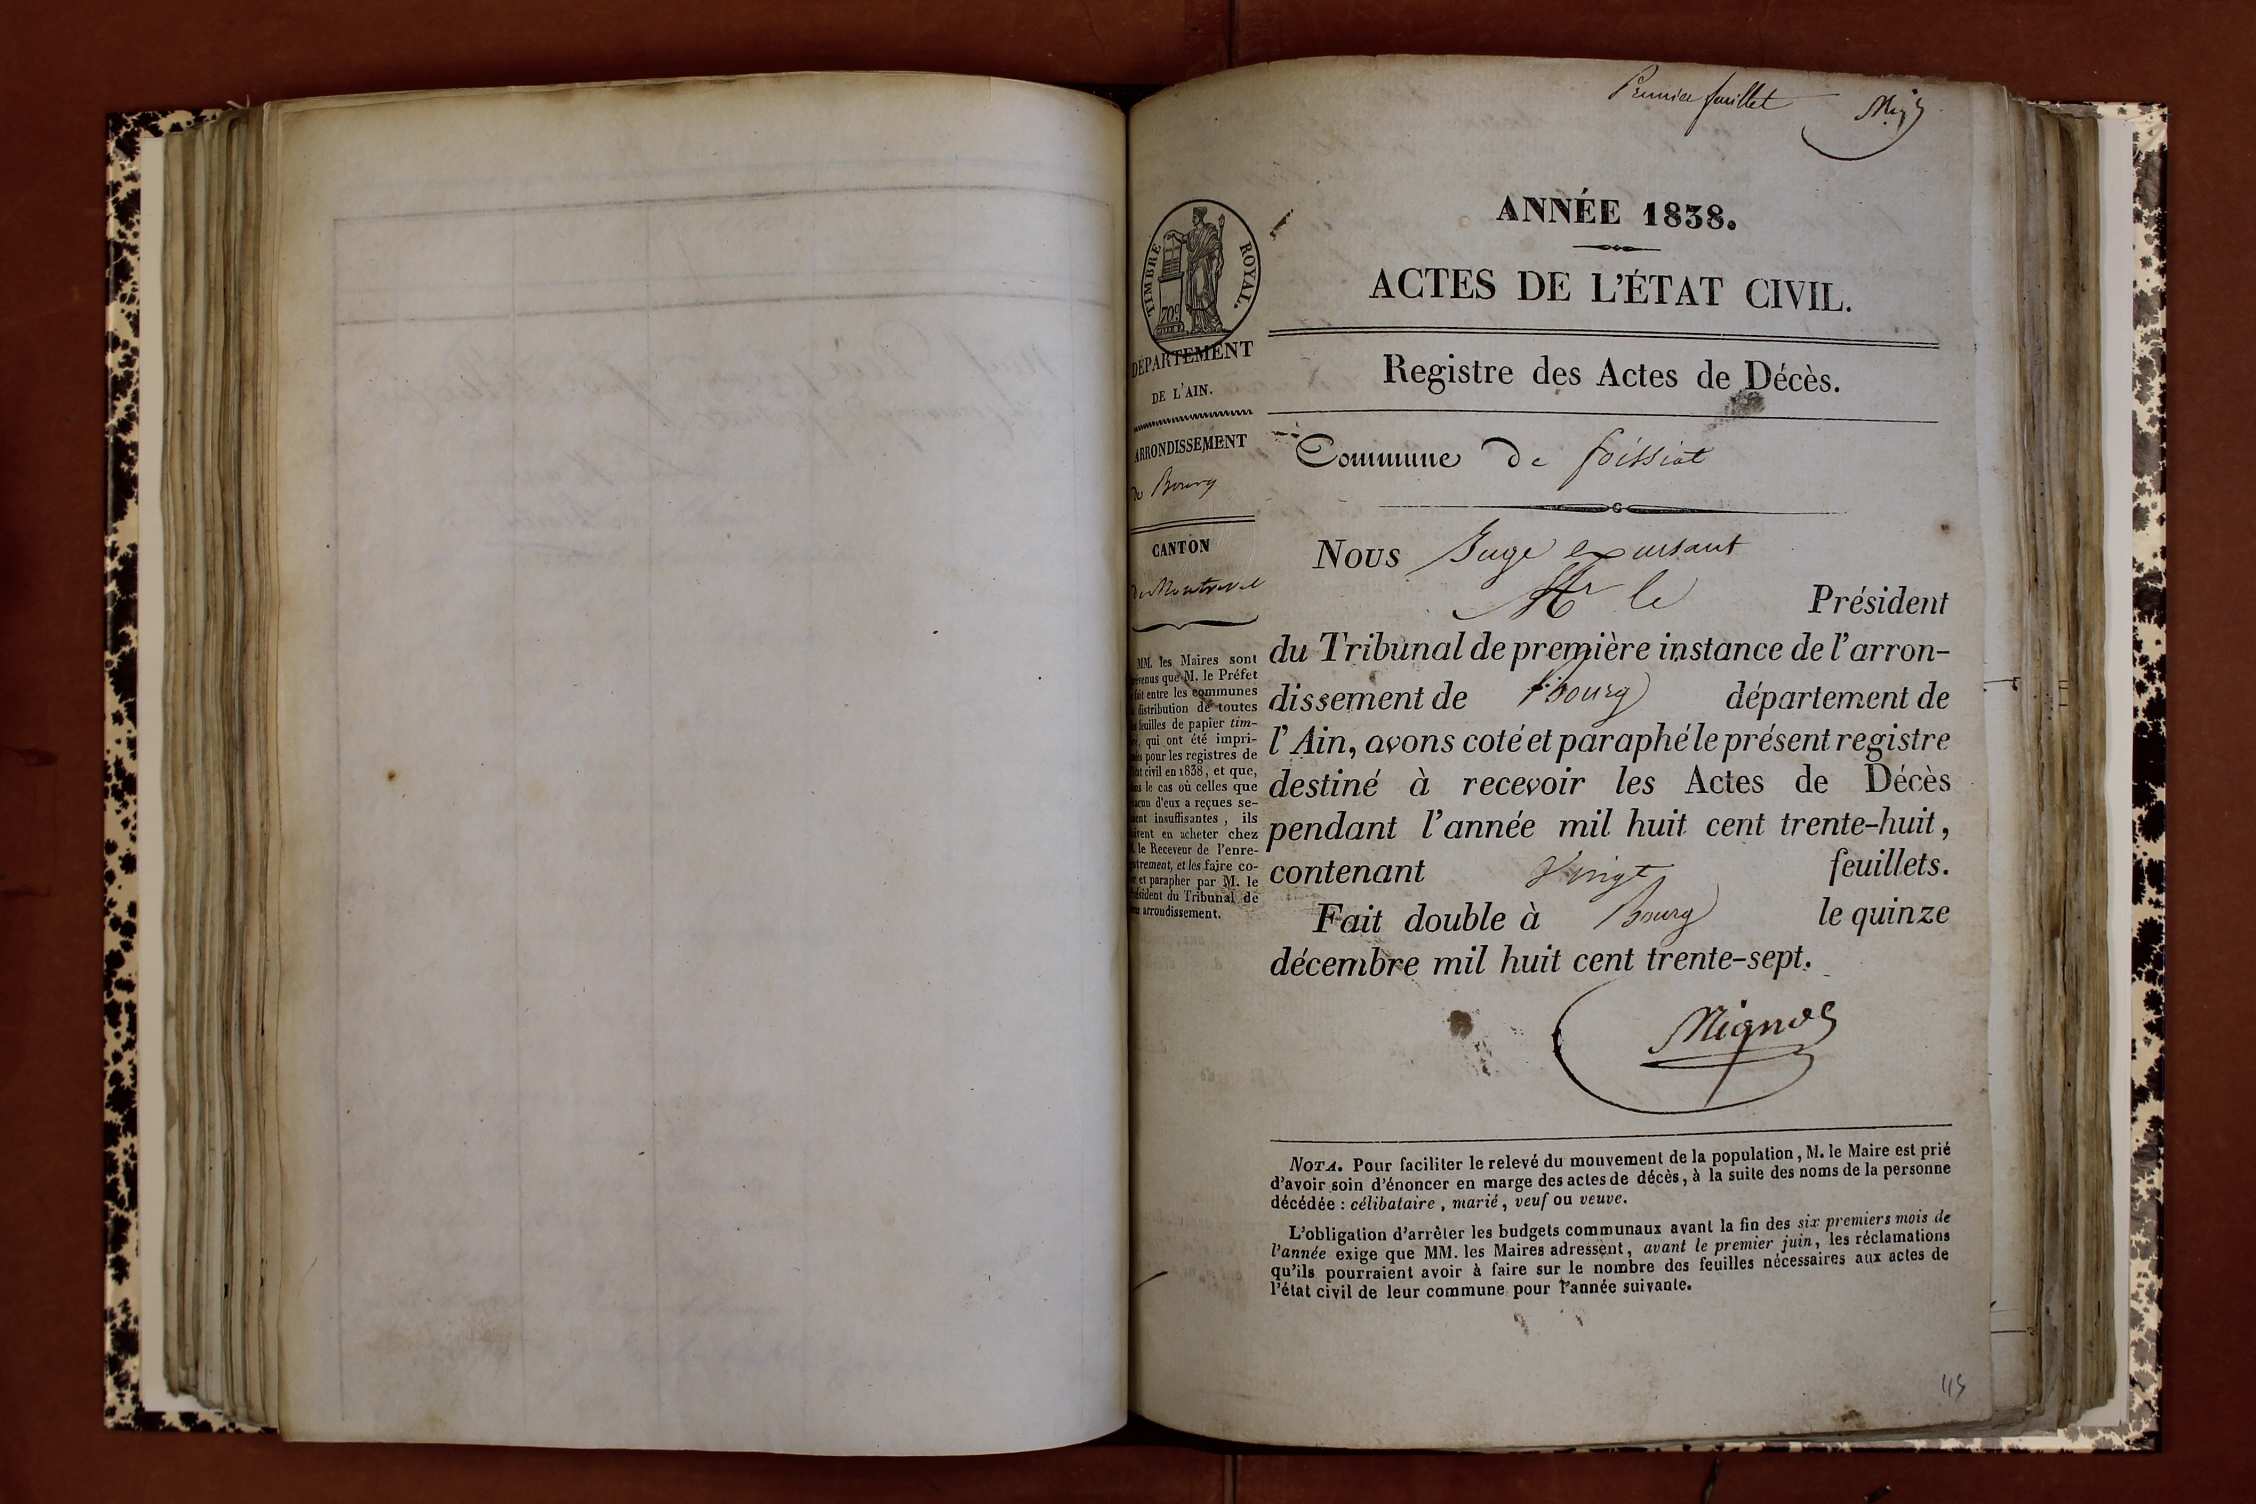 Premier feuillet
ANNÉE 1838.
ACTES DE L'ÉTAT CIVIL.
TIMBRE ROYAL.
70c
DÉPARTEMENT
DE L'AIN.
ARRONDISSEMENT
de Bourg
CANTON
de Montrevel
MM. les Maires sont
prévenus que M. le Préfet
fait entre les communes
distribution de toutes
feuilles de papier tim-
qui ont été impri-
pour les registres de
civil en 1838, et que,
le cas où celles que
d'eux a reçues se-
insuffisantes, ils
en acheter chez
le Receveur de l'enre-
et les faire co-
et parapher par M. le
Président du Tribunal de
arrondissement.
Registre des Actes de Décès.
Commune de foissiat
Nous Juge
Mr le Président
du Tribunal de première instance de l'arron-
dissement de Bourg département de
l'Ain, avons coté et paraphé le présent registre
destiné à recevoir les Actes de Décès
pendant l'année mil huit cent trente-huit,
contenant Vingt feuillets.
Fait double à Bourg le quinze
décembre mil huit cent trente-sept.
NOTA. Pour faciliter le relevé du mouvement de la population, M. le Maire est prié
d'avoir soin d'énoncer en marge des actes de décès, à la suite des noms de la personne
décédée : célibataire, marié, veuf ou veuve.
L'obligation d'arrêter les budgets communaux avant la fin des six premiers mois de
l'année exige que MM. les Maires adressent, avant le premier juin, les réclamations
qu'ils pourraient avoir à faire sur le nombre des feuilles nécessaires aux actes de
l'état civil de leur commune pour l'année suivante.